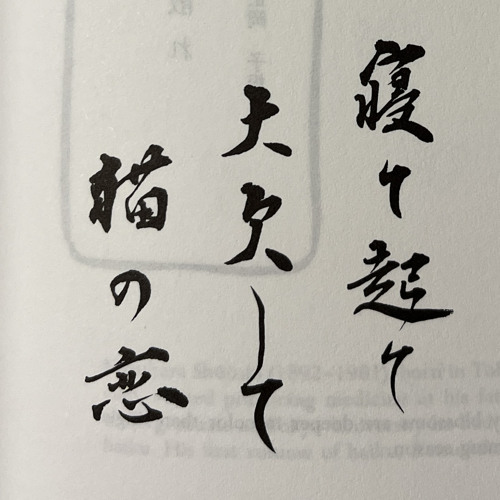 寝て起て
大欠して
猫の恋